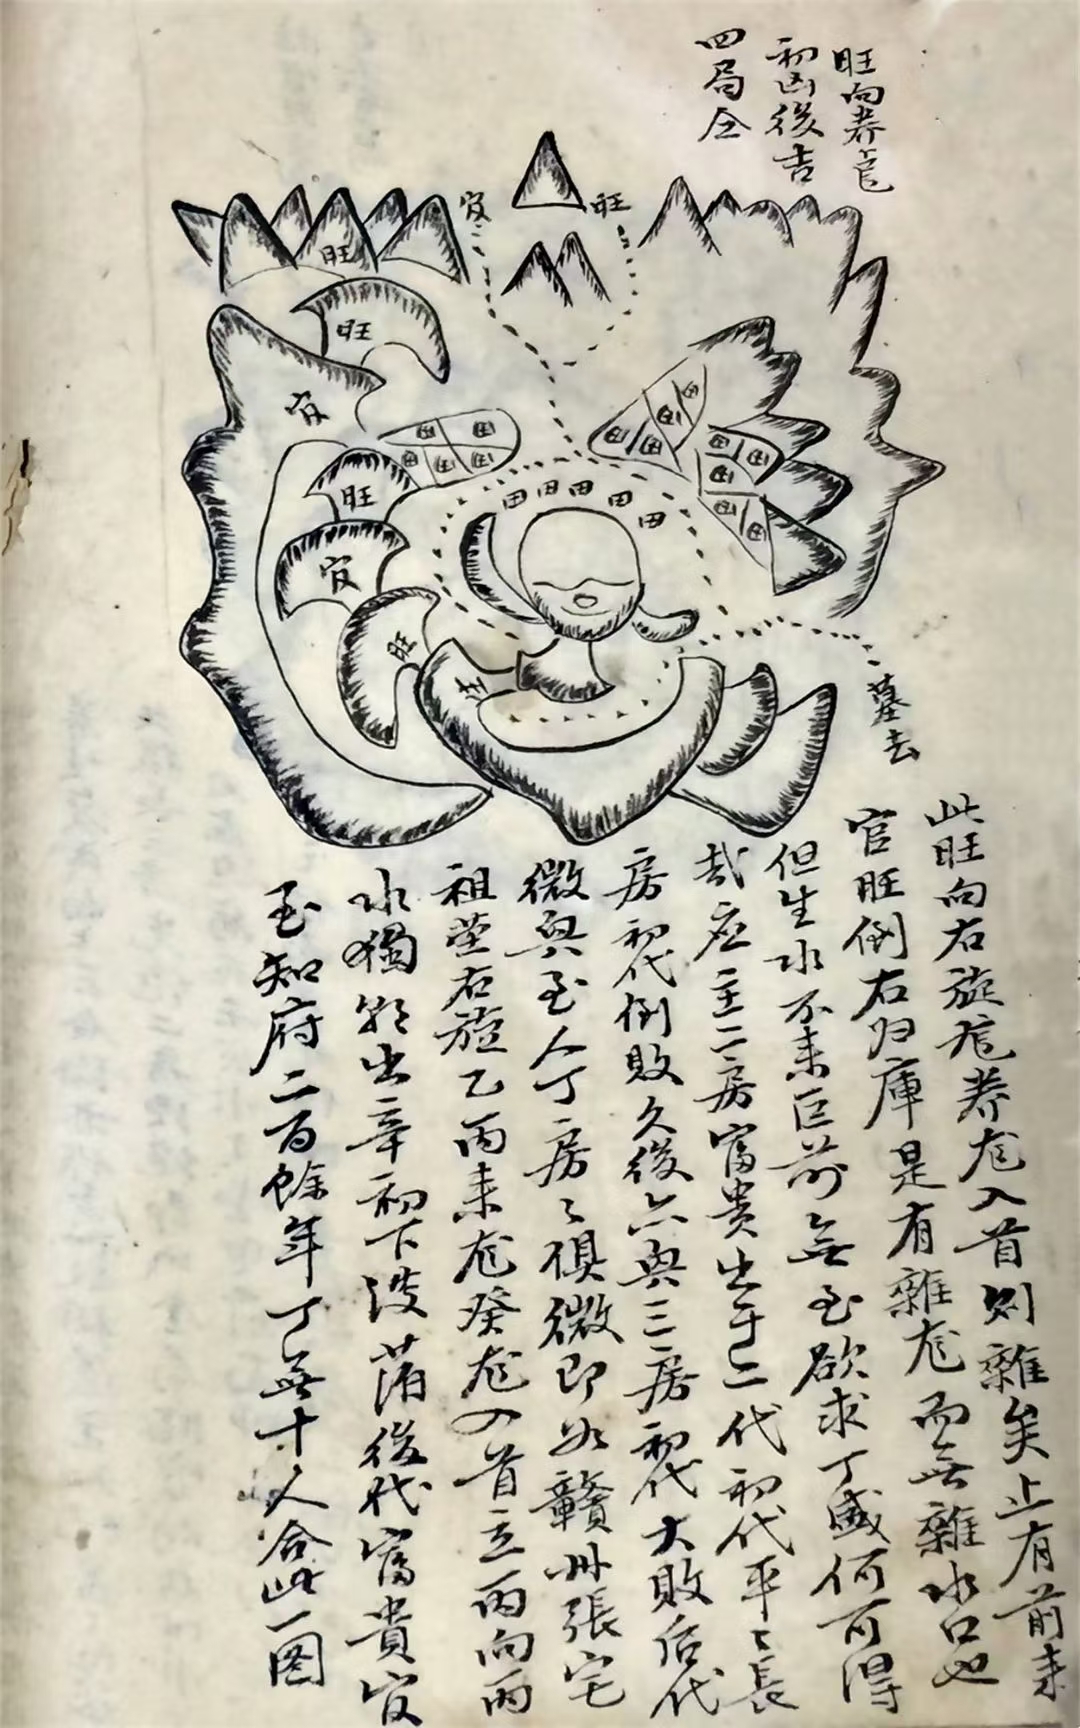 旺向养龙
初凶後吉
四局仝
官
旺
旺
旺
官
旺
官
旺
旺
墓去
此旺向右旋龙养龙入首则雜矣止有前来
官旺倒右归庫是有雜龙而無雜水口也
但生水不来巨前無至欲求丁盛何可得
哉应主二房富贵出于二代初代平〻長
房初代倒敗久後六興三房初代大敗后代
微興至人丁房〻俱微即如贛州張宅
祖茔右旋乙丙来龙癸龙入首立丙向丙
水獨朝出辛初下淡薄後代富貴官
至知府二百餘年丁無十人合此一图